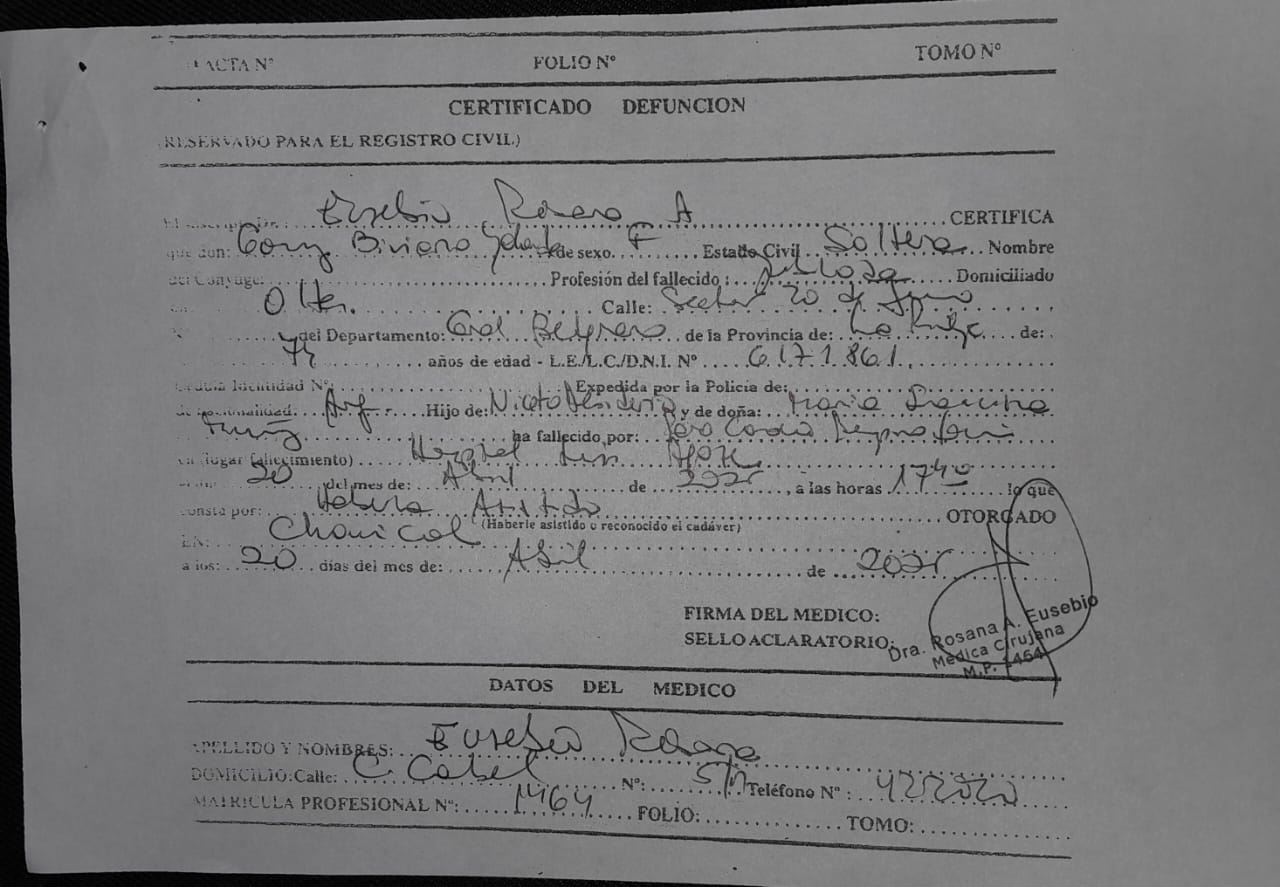 ACTA Nº FOLIO Nº TOMO Nº
CERTIFICADO DEFUNCION
(RESERVADO PARA EL REGISTRO CIVIL)
El suscripto: Eusebio Rosana A CERTIFICA
que don: de sexo. F Estado Civil Soltera Nombre
del Conyuge: Profesión del fallecido : Domiciliado
Olta. Calle: Sector 20 de
Nº del Departamento: Gral Belgrano de la Provincia de: La Rioja de:
74 años de edad - L.E./L.C./D.N.I. Nº 6.171.861.
Cédula Identidad Nº Expedida por la Policía de:
de nacionalidad: Arg. Hijo de: y de doña: Maria
ha fallecido por: Paro Cardio Respiratorio
en (lugar fallecimiento) Hospital Luis
el día 20 del mes de: Abril de 2025, a las horas 17 40 lo que
consta por: Haberla Asistido
(Haberle asistido o reconocido el cadáver) OTORGADO
EN: Chamical
a los: 20 días del mes de: Abril de 2025
FIRMA DEL MEDICO:
SELLO ACLARATORIO:
Dra. Rosana A. Eusebio
Médica Cirujana
M.P. 1464
DATOS DEL MEDICO
APELLIDO Y NOMBRES: Eusebio Rosana
DOMICILIO: Calle: C. Nº: S/N Teléfono Nº : 422020
MATRICULA PROFESIONAL Nº: 1464 FOLIO: TOMO: